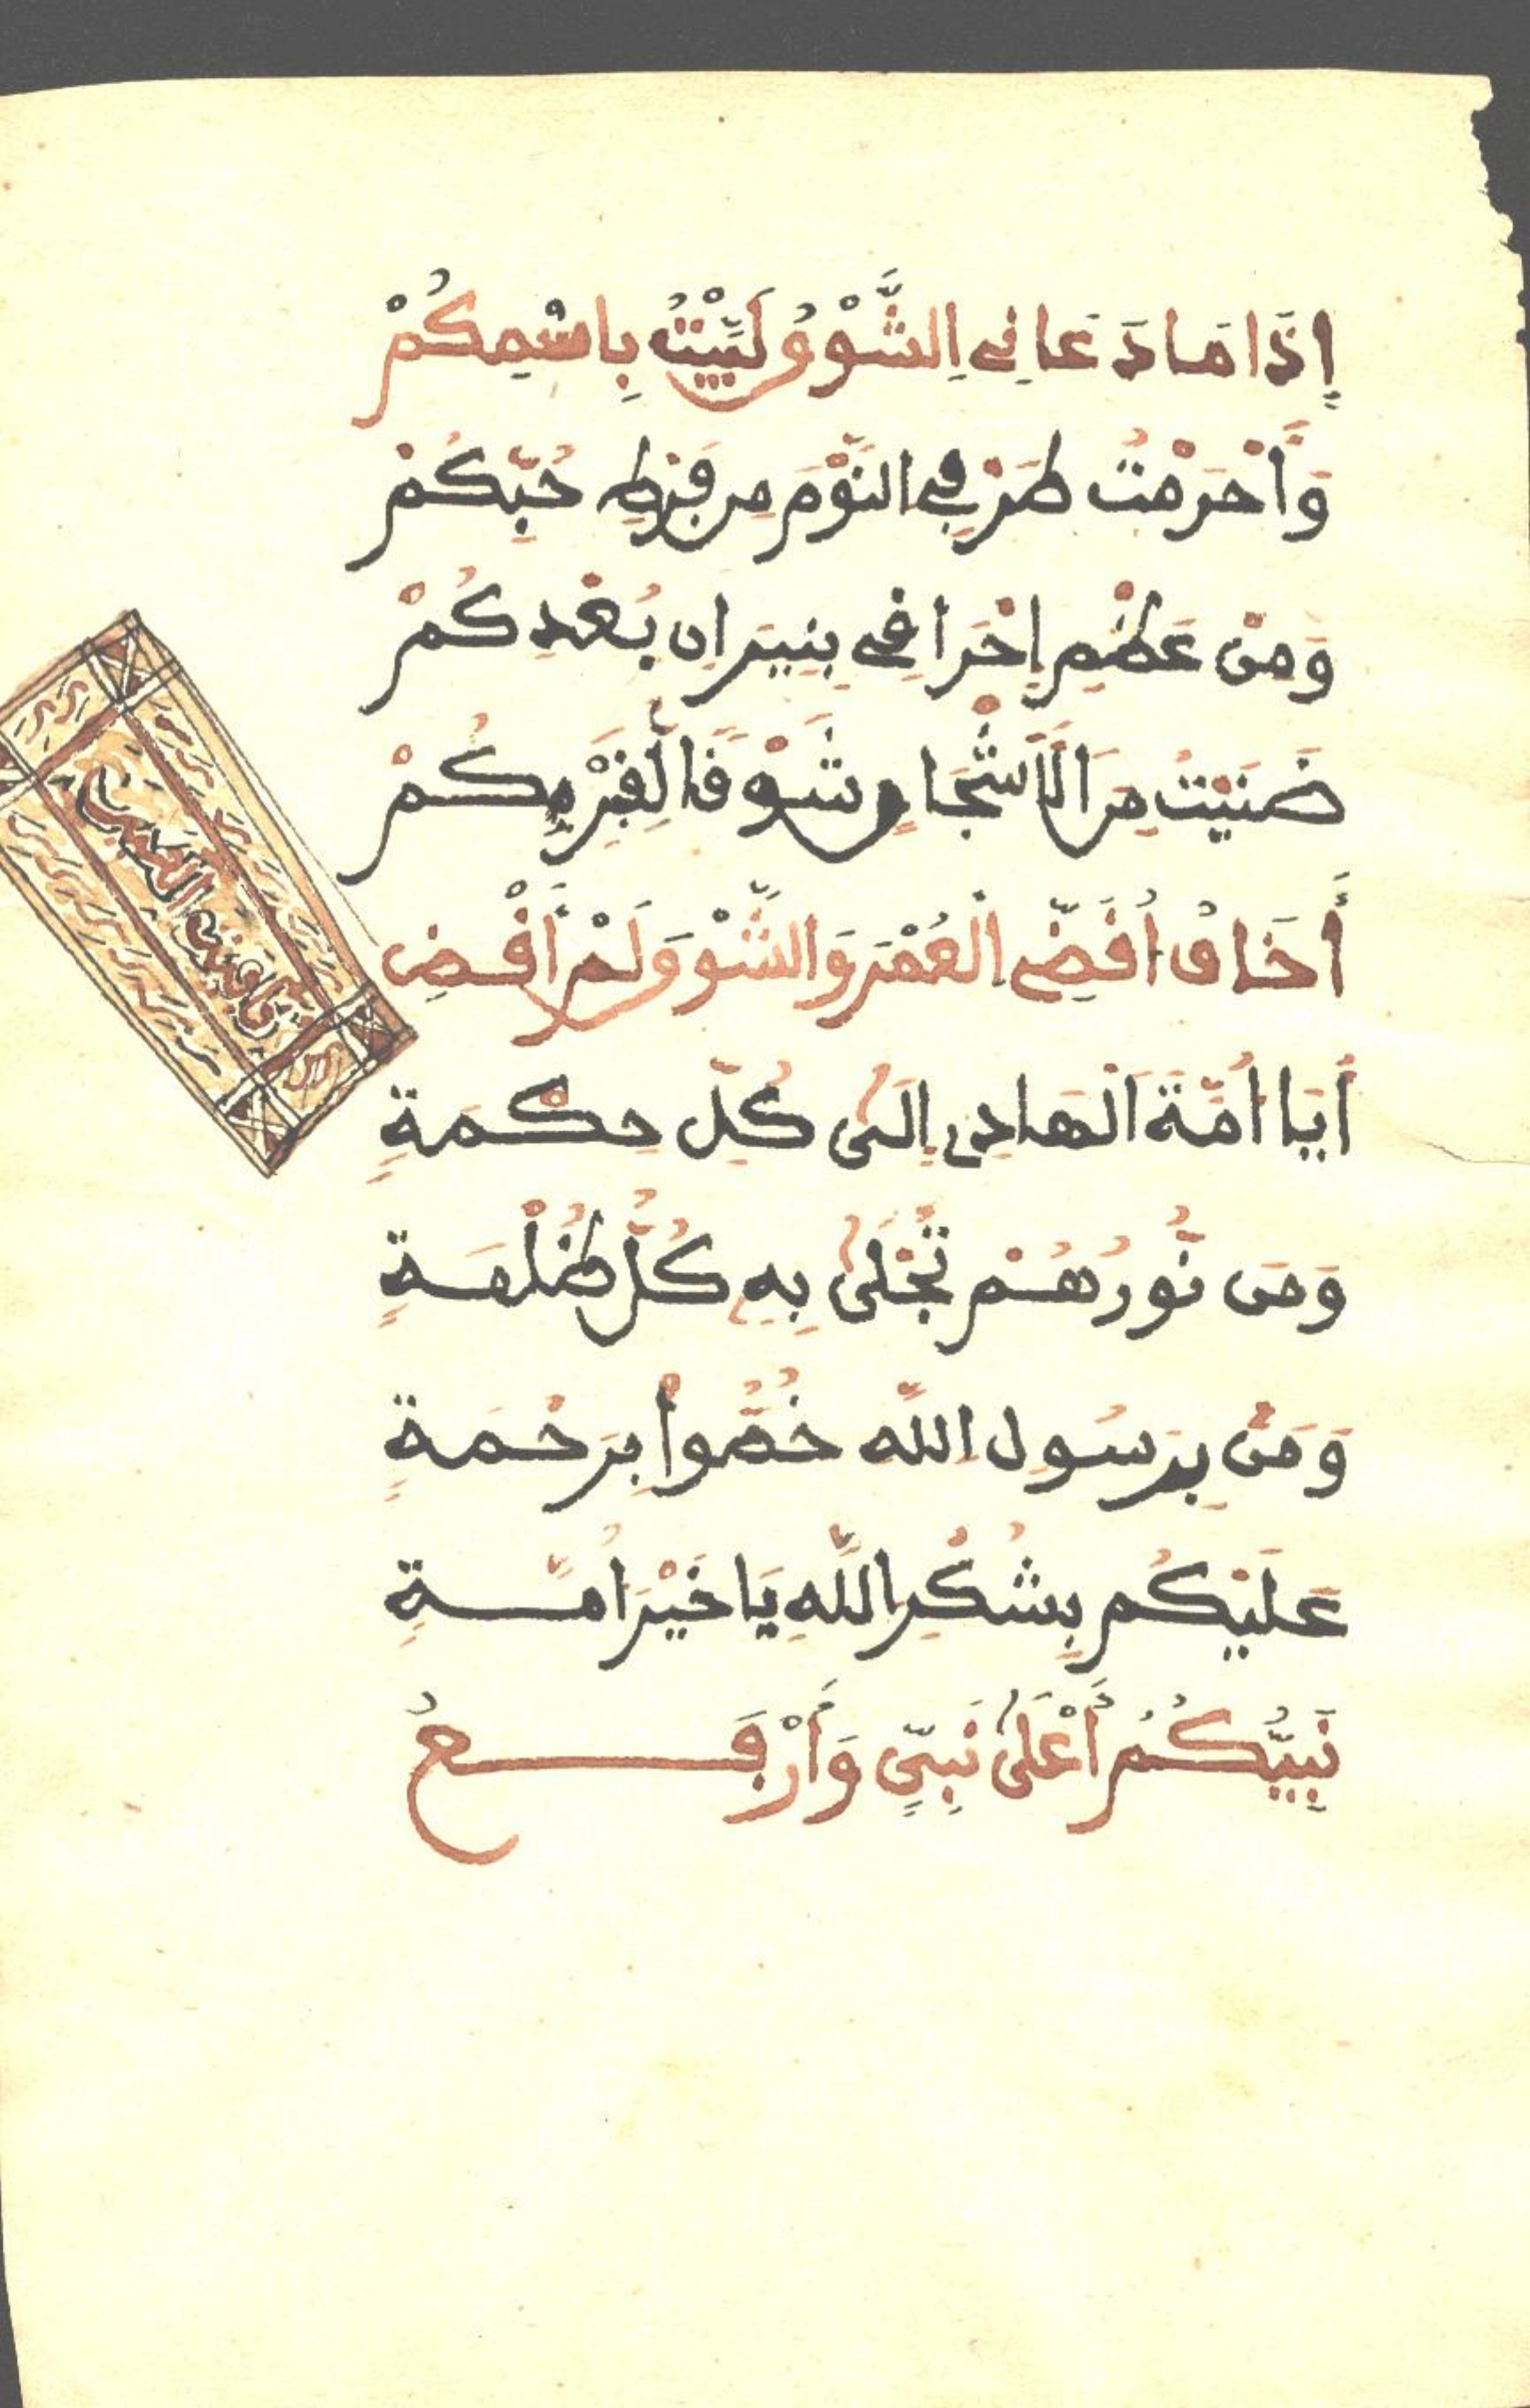 إِذَا مَا دَعَانِي اِلشَّوْقُ لَبَّيْتُ بِاسْمِكُمْ
وَأَحْرَمْتُ طَرْفِي النَّوْمَ مِن فَرْطِ حُبِّكُمْ
وَمِنْ عَظْمِ إِحْرَاقِي بِنِيرَانِ بُعْدِكُمْ
ضَنَيْتُ مِنَ الْأَشْجَانِ شَوْقًا لِقُرْبِكُمْ
أَخَافُ اُفَضِّي اَلْعُمْرَ وَالشَّوْقَ وَلَمْ أَقْضِ
أَيَا اُمَّةَ اَلْهَادِي إِلَىٰ كُلِّ حِكْمَةٍ
وَمَن نُّورُهُمْ تُجْلَىٰ بِهِ كُلُّ ظُلْمَةٍ
وَمَنْ بِرَسُولِ اِللَّهِ خُصُّواْ بِرَحْمَةٍ
عَلَيْكُم بِشُكْرِ اللَّهِ يَا خَيْرَ اُمَّةٍ
نَبِيُّكُمُ أَعْلَىٰ نَبِيٍّ وَأَرْفَعُ